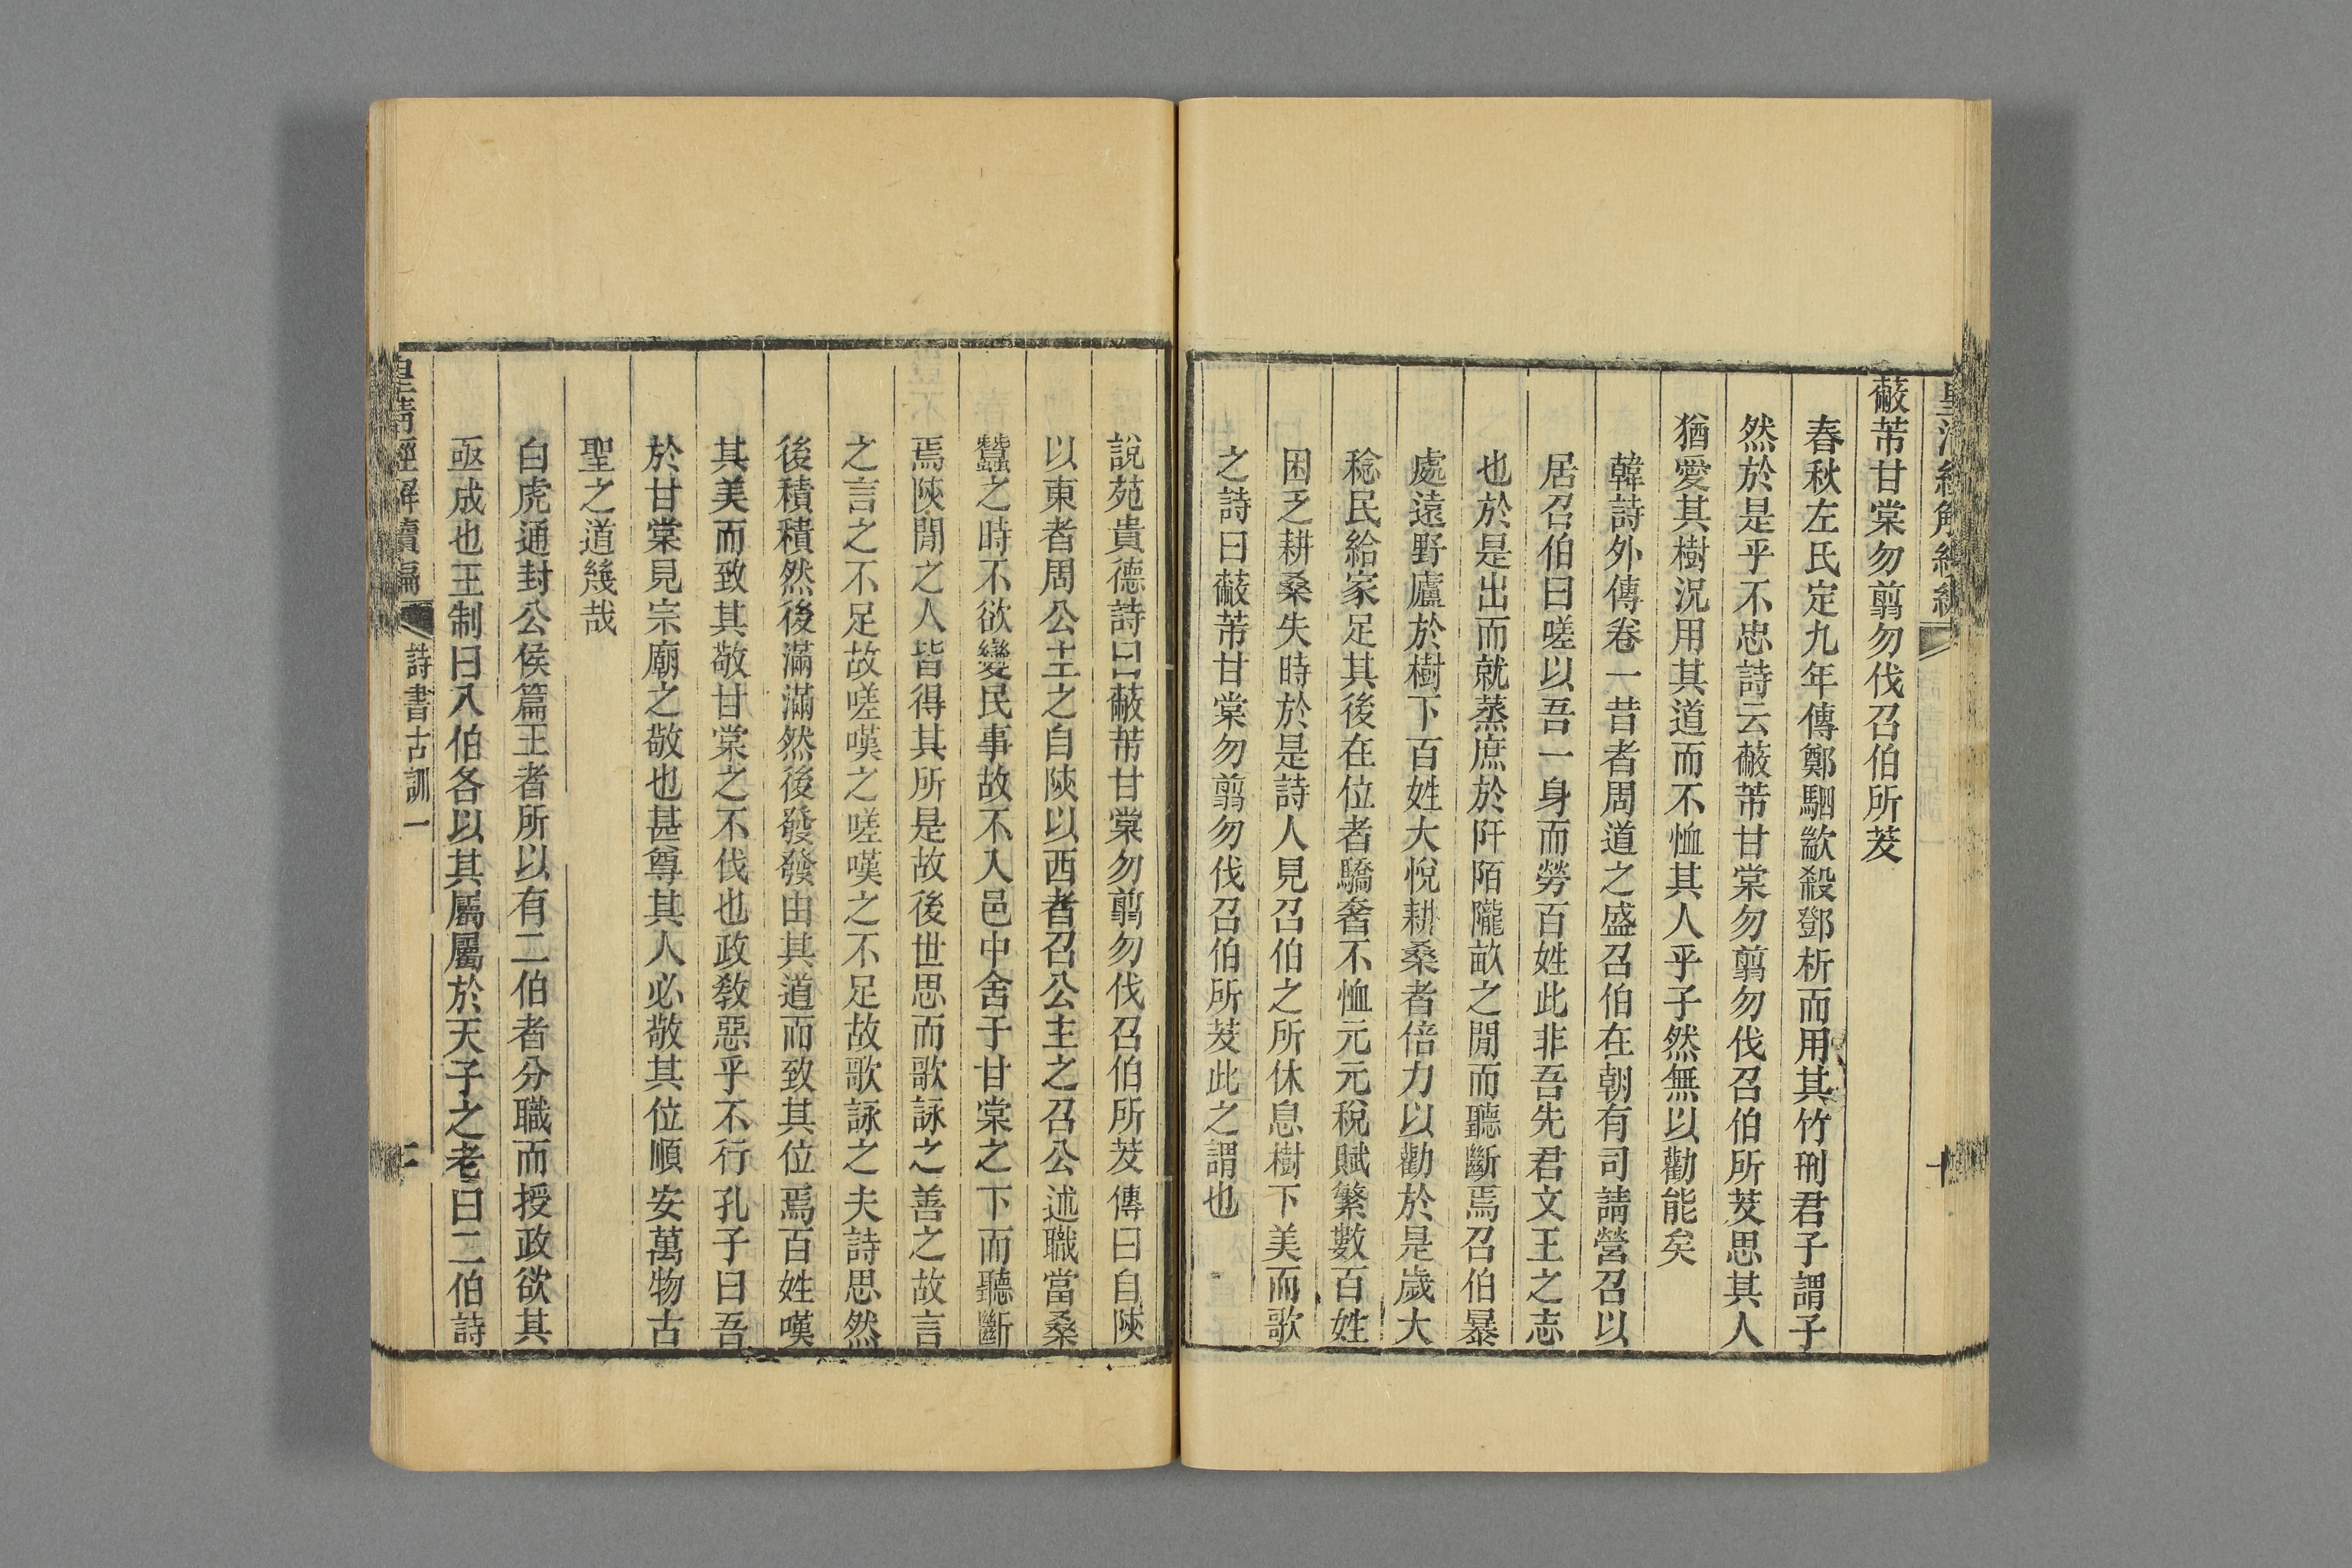 蔽芾甘棠勿翦勿伐召伯所茇
春秋左氏定九年傳鄭駟歂殺鄧析而用其竹刑君子謂子
然於是乎不忠詩云蔽芾甘棠勿翦勿伐召伯所茇思其人
猶愛其樹況用其道而不恤其人乎子然無以勸能矣
韓詩外傳卷一昔者周道之盛召伯在朝有司請營召以
居召伯曰嗟以吾一身而勞百姓此非吾先君文王之志
也於是出而就蒸庶於阡陌隴畝之閒而聽斷焉召伯暴
處遠野廬於樹下百姓大悅耕桑者倍力以勸於是歲大
稔民給家足其後在位者驕奢不恤元元稅賦繁數百姓
困乏耕桑失時於是詩人見召伯之所休息樹下美而歌
之詩曰蔽芾甘棠勿翦勿伐召伯所茇此之謂也
說苑貴德詩曰蔽芾甘棠勿翦勿伐召伯所茇傳曰自陝
以東者周公主之自陝以西者召公主之召公述職當桑
蠶之時不欲變民事故不入邑中舍于甘棠之下而聽斷
焉陝閒之人皆得其所是故後世思而歌詠之善之故言
之言之不足故嗟嘆之嗟嘆之不足故歌詠之夫詩思然
後積積然後滿滿然後發發由其道而致其位焉百姓嘆
其美而致其敬甘棠之不伐也政敎惡乎不行孔子曰吾
於甘棠見宗廟之敬也甚尊其人必敬其位順安萬物古
聖之道幾哉
白虎通封公侯篇王者所以有二伯者分職而授政欲其
亟成也王制曰八伯各以其屬屬於天子之老曰二伯詩
皇清經解續編
詩書古訓一